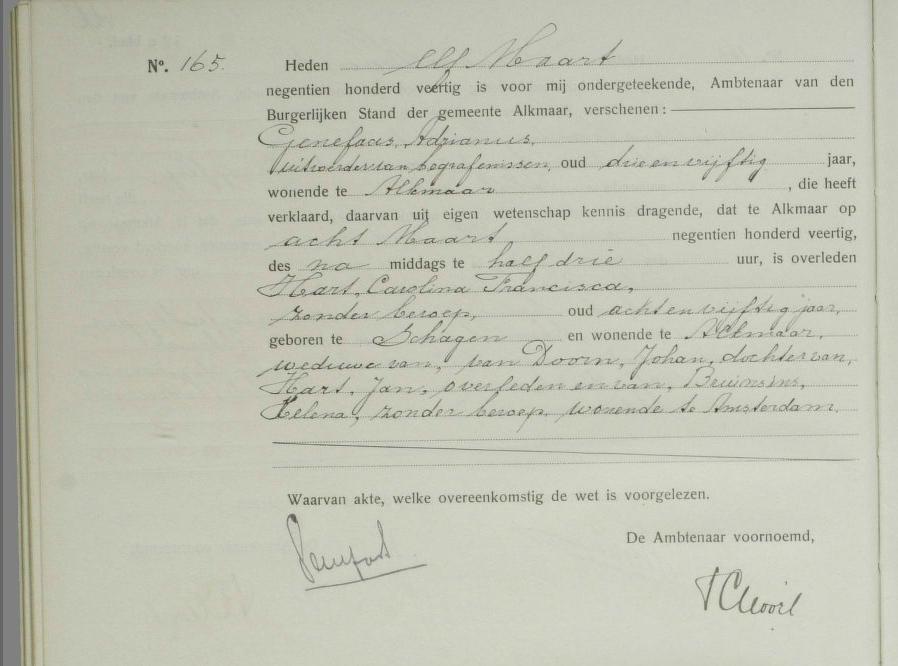 Nº. 165.
Heden elf Maart
negentien honderd veertig is voor mij ondergeteekende, Ambtenaar van den
Burgerlijken Stand der gemeente Alkmaar, verschenen:
Genefaas, Adrianus,
uitvoerder van begrafenissen, oud drie en vijftig jaar,
wonende te Alkmaar, die heeft
verklaard, daarvan uit eigen wetenschap kennis dragende, dat te Alkmaar op
acht Maart negentien honderd veertig,
des na middags te half drie uur, is overleden
Hart, Carolina Francisca,
zonder beroep, oud acht en vijftig jaar,
geboren te Schagen en wonende te Alkmaar,
weduwe van, van Doorn, Johan, dochter van,
Hart, Jan, overleden en van, Bruinsins,
Helena, zonder beroep, wonende te Amsterdam.
Waarvan akte, welke overeenkomstig de wet is voorgelezen.
De Ambtenaar voornoemd,